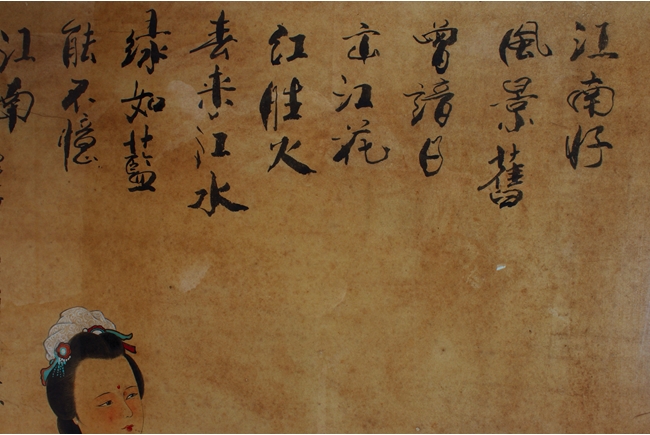 江南好
風景舊
曾諳日
出江花
红胜火
春来江水
绿如藍
能不憶
江南